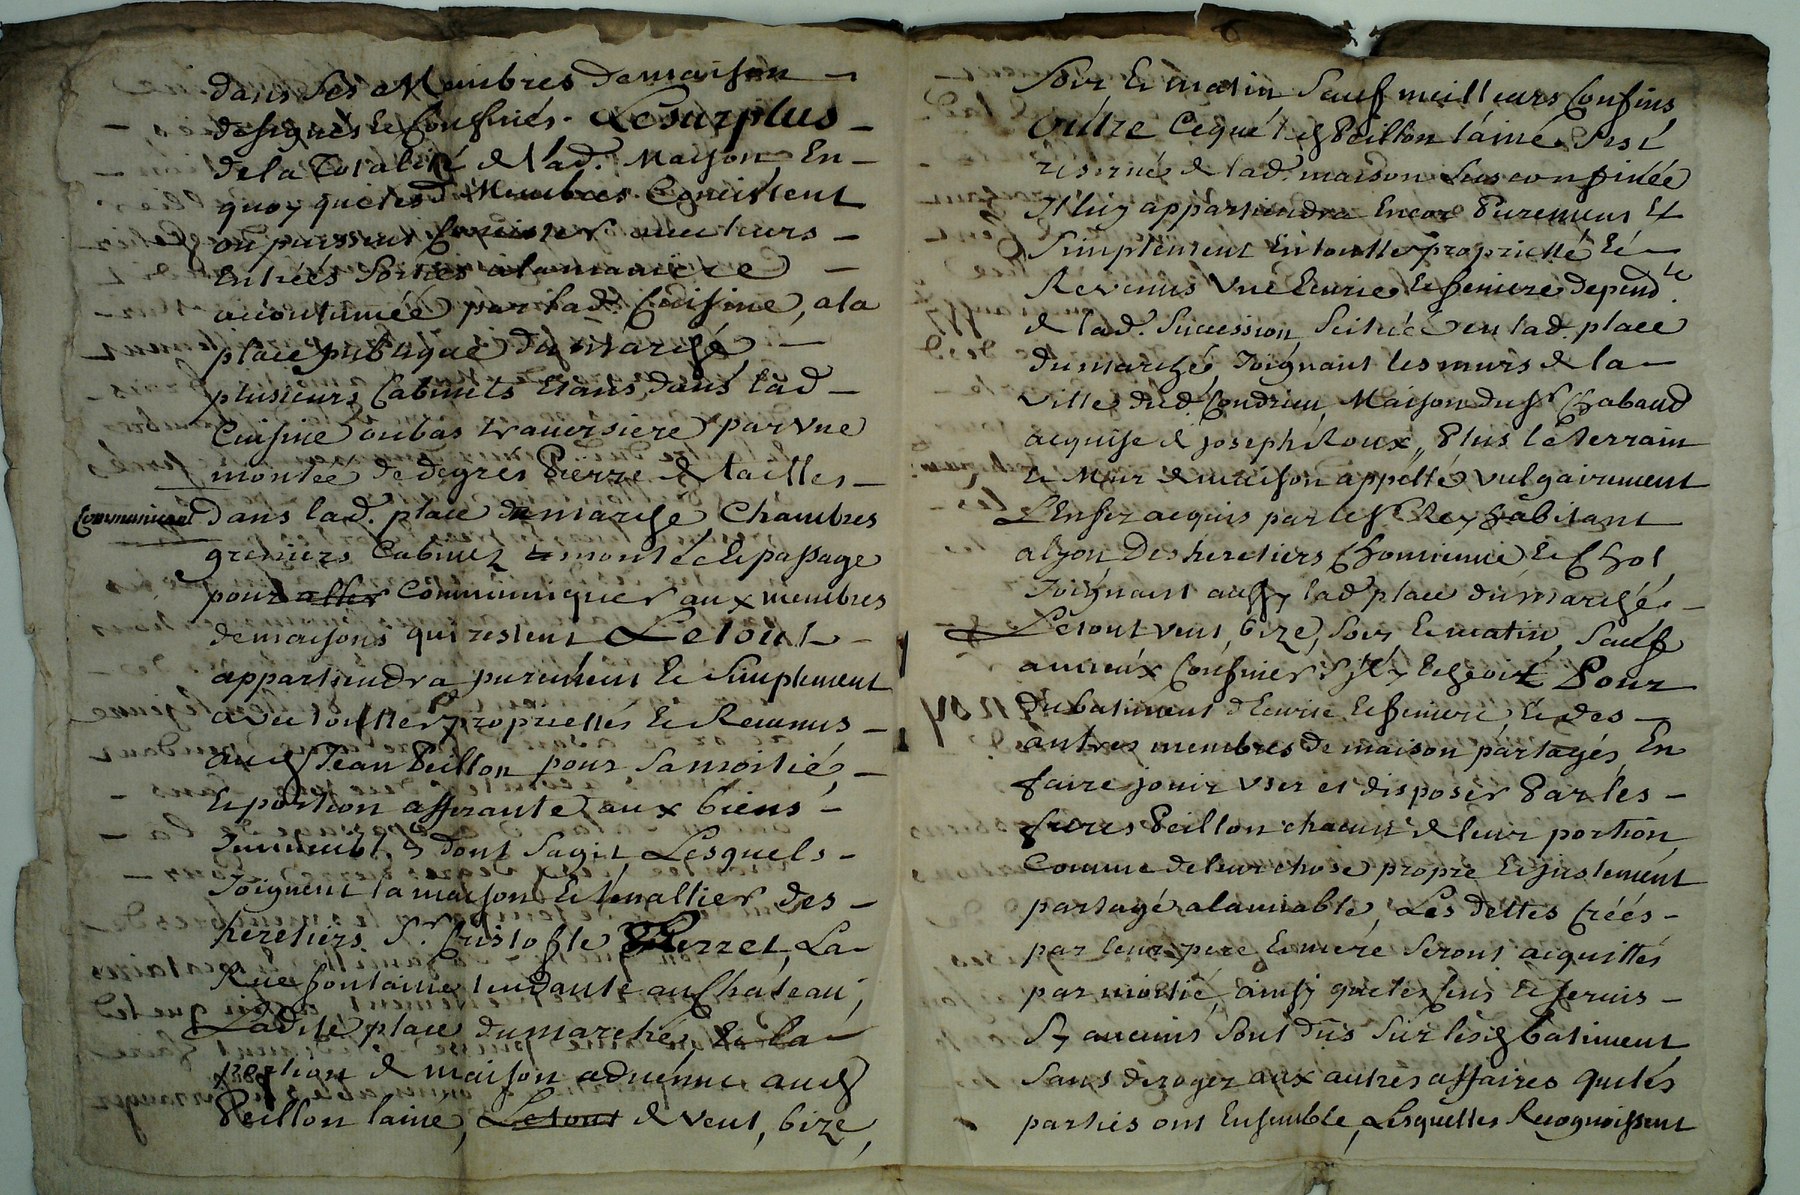 dans ses Membres de maison
designés et Confinés. Le surplus
de la Totalité de lad. Maison En
quoy que lesd. Membres Consistent
ou puissent Consister avec leurs
Entrées sorties a la maniere
acoutumée par lad. Cuisine, a la
place publique du marché
plusieurs Cabinets Etans dans lad
Cuisine au bas traversiere par vne
montée de degres Pierre de tailles
Communiquant
dans lad. place du marché Chambres
greniers Cabinet montée et passage
pour aller Communiquer aux membres
de maisons qui restent Le tout
appartiendra purement et Simplement
avec touttes proprietés et Revenus
aud Jean Peillon pour sa moitié
et portion afferante aux biens
Immeubles dont sagit Lesquels
Joignent la maison et des
heretiers Sr. Cristofle Perret, La
Rue fontaine tendante au Chateau,
Ladite place du marché, & la
portion de maison advenue aud
Peillon lainé, Le tout de vent, bize,
Soir et matin Sauf meilleurs Confins
Outre Ceque led Peillon lainé Sest
reservé de lad. maison sus confinée
Il luy appartiendra Encor Purement Et
Simplement En toutte proprietté Et
Revenus Vne Ecurie et feniere depend.te
de lad. Succession, Scituée en lad. place
du marché Joignant les murs de la
ville dud. Condrieu, Maison du Sr Chabaud
acquise de joseph Roux, Plus le Terrain
et Mur de maison appellé vulgairement
L'Enfer acquis par le Sr Rey habitant
a lyon Des heretiers et Chol,
Joignant aussy lad place du marché
Le tout vent, bize, Soir et matin, Sauf
a mieux Confiner Pour
du batiment d'Ecurie et feniere, et des
autres membres de maison partagés, En
faire jouir vser et disposer Par les
freres Peillon chacun de leur portion
Comme de leur chose propre et justement
partagé a lamiable, Les dettes Créés
par leur pere et mere Seront acquittés
par moitié, ainsy que les Cens et servis
Sy aucuns Sont dus Sur lesd batiment
Sans deroger aux autres affaires que les
parties ont Ensemble, Lesquelles Recognoissent